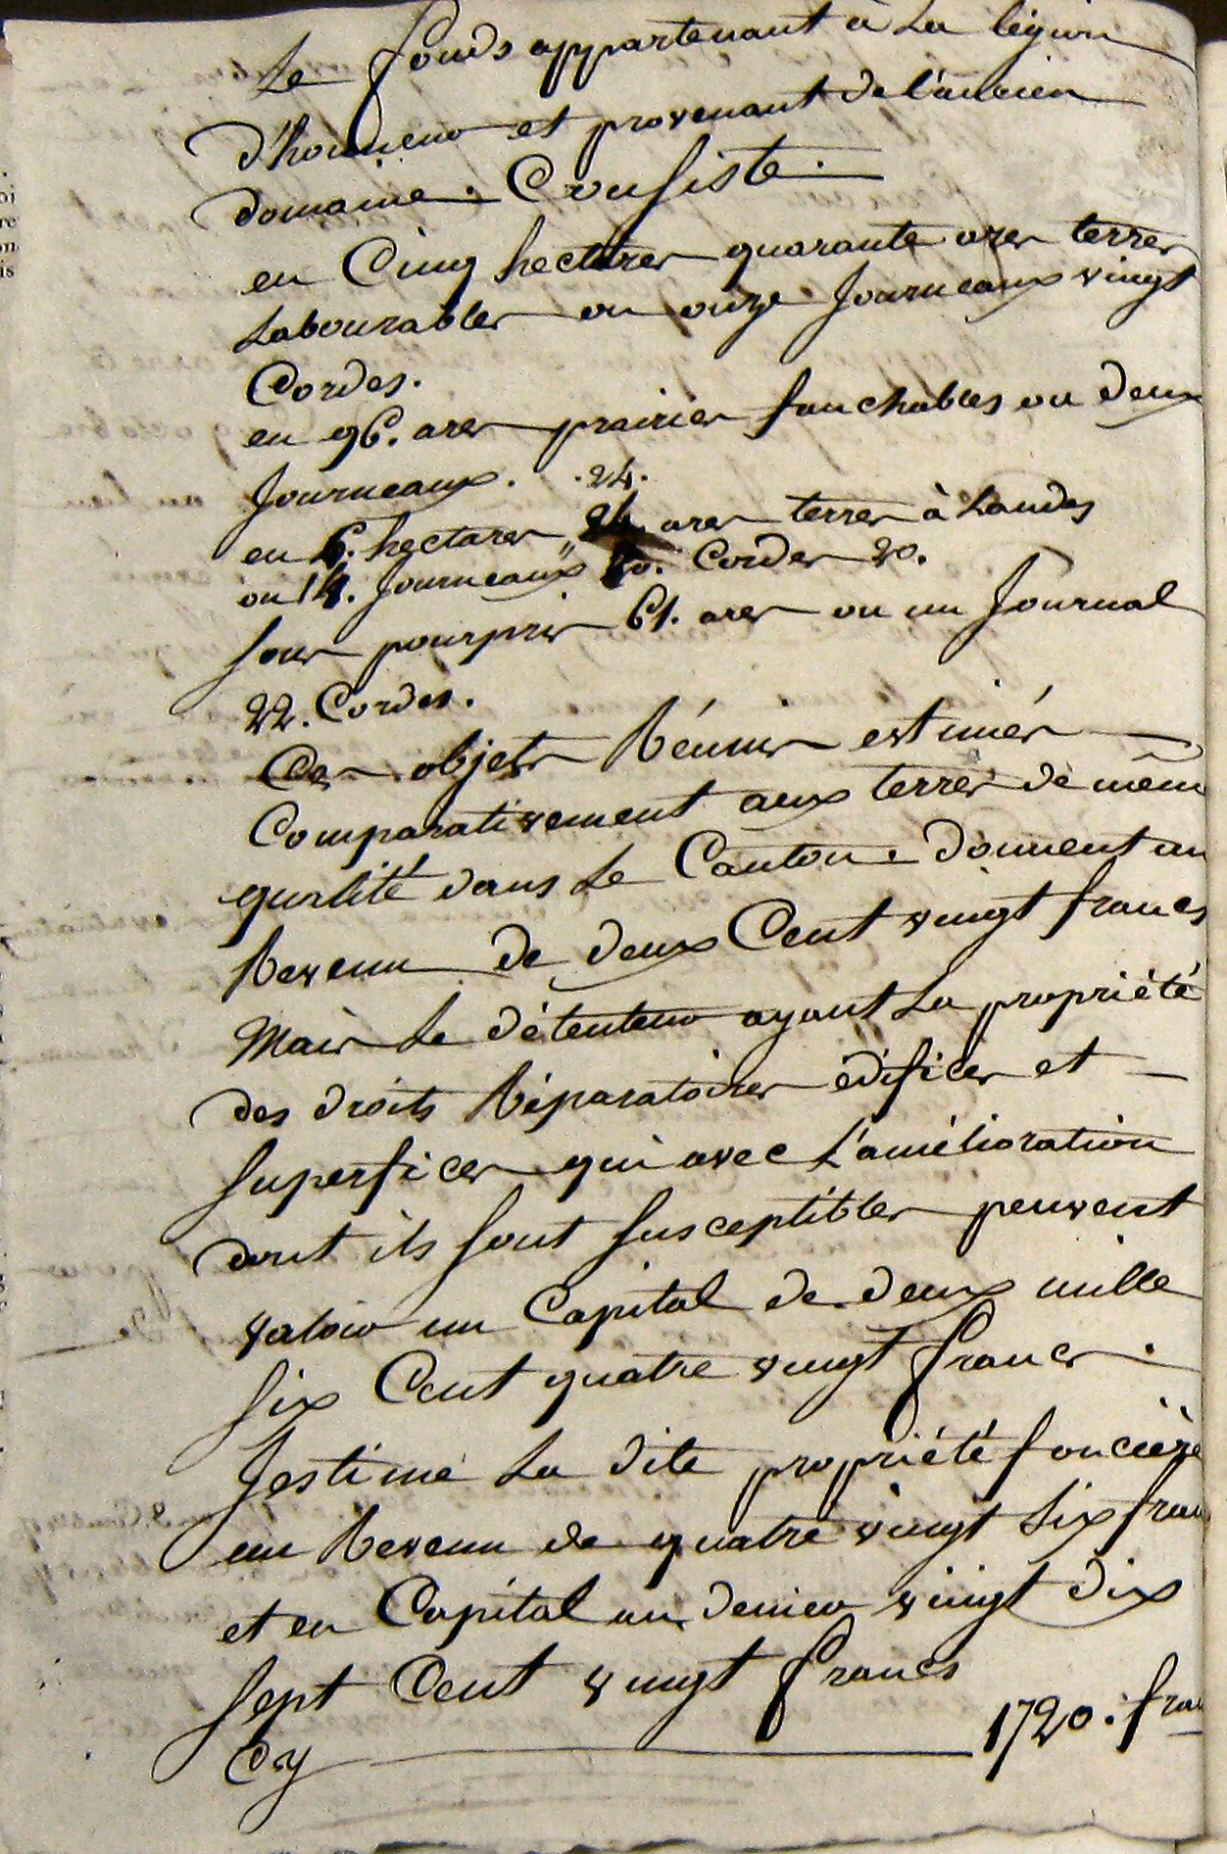 Le fonds appartenant à La légion
d'honneur et provenant de l'ancien
domaine. Consiste.
en Cinq hectares quarante ares terres
Labourables ou onze Journeaux vingt
Cordes.
en 96. ares prairies fauchables ou deux
Journeaux. .24.
en 6. hectares ares terres à Landes
ou 14. Journeaux Cordes 20.
sous pourpris 61. ares ou un Journal
22. Cordes.
Ces objets Réunis estimés
Comparativement aux terres de même
qualité dans Le Canton. donnent un
Revenu de deux Cent vingt francs
Mais Le détenteur ayant La propriété
des droits Réparatoires édifices et
superfices qui avec L'amélioration
dont ils sont susceptibles peuvent
valoir un Capital de deux mille
six Cent quatre vingt francs.
J'estime La dite propriété foncière
un Revenu de quatre vingt six fran
et en Capital au denier vingt dix
sept Cent vingt francs
Cy 1720. fran
oi
re
on
is